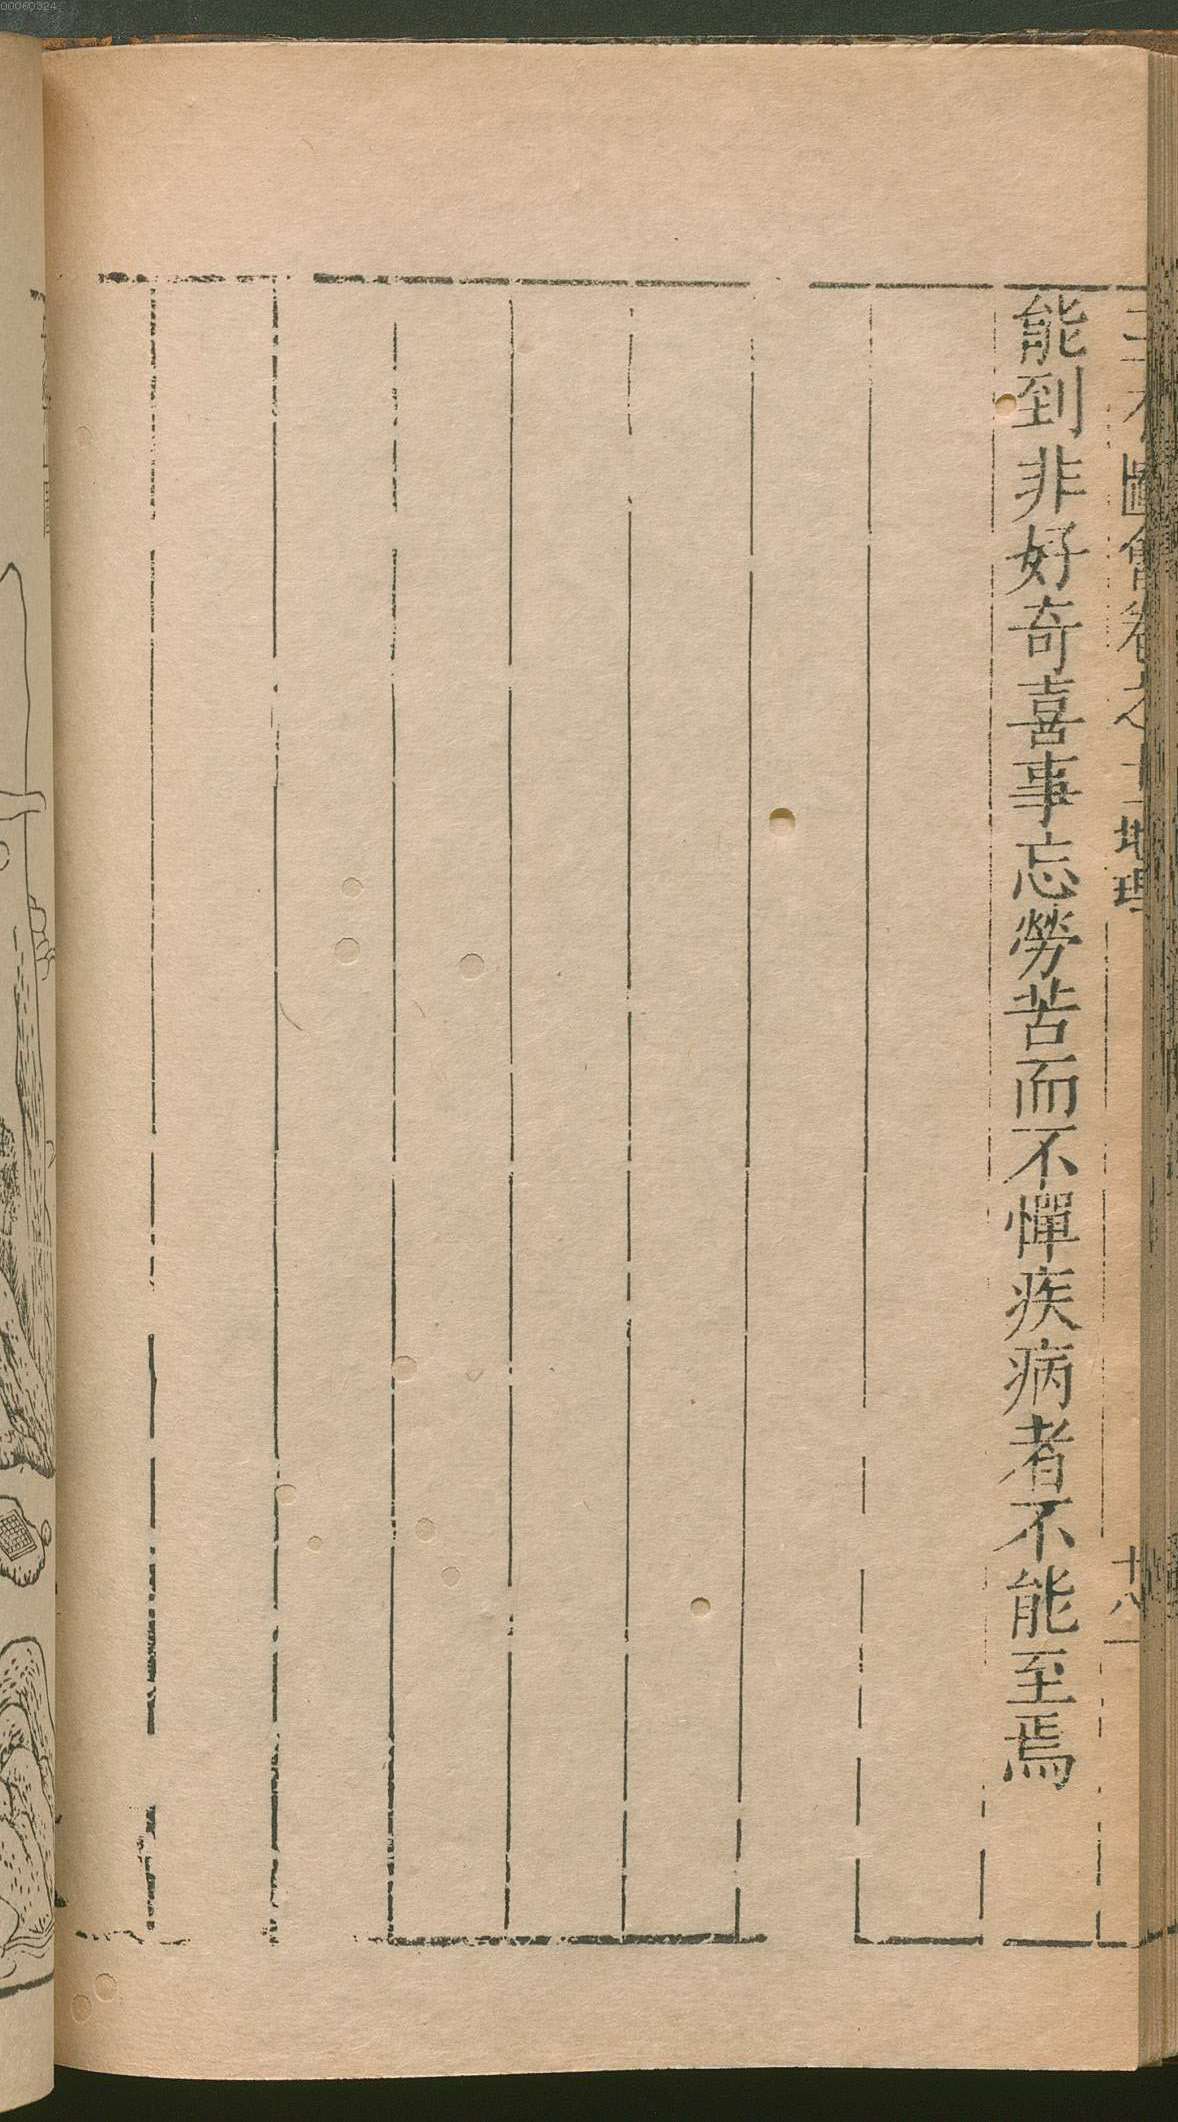 三才圖會卷之十一地理
十八
能到非好奇喜事忘勞苦而不憚疾病者不能至焉
00060324